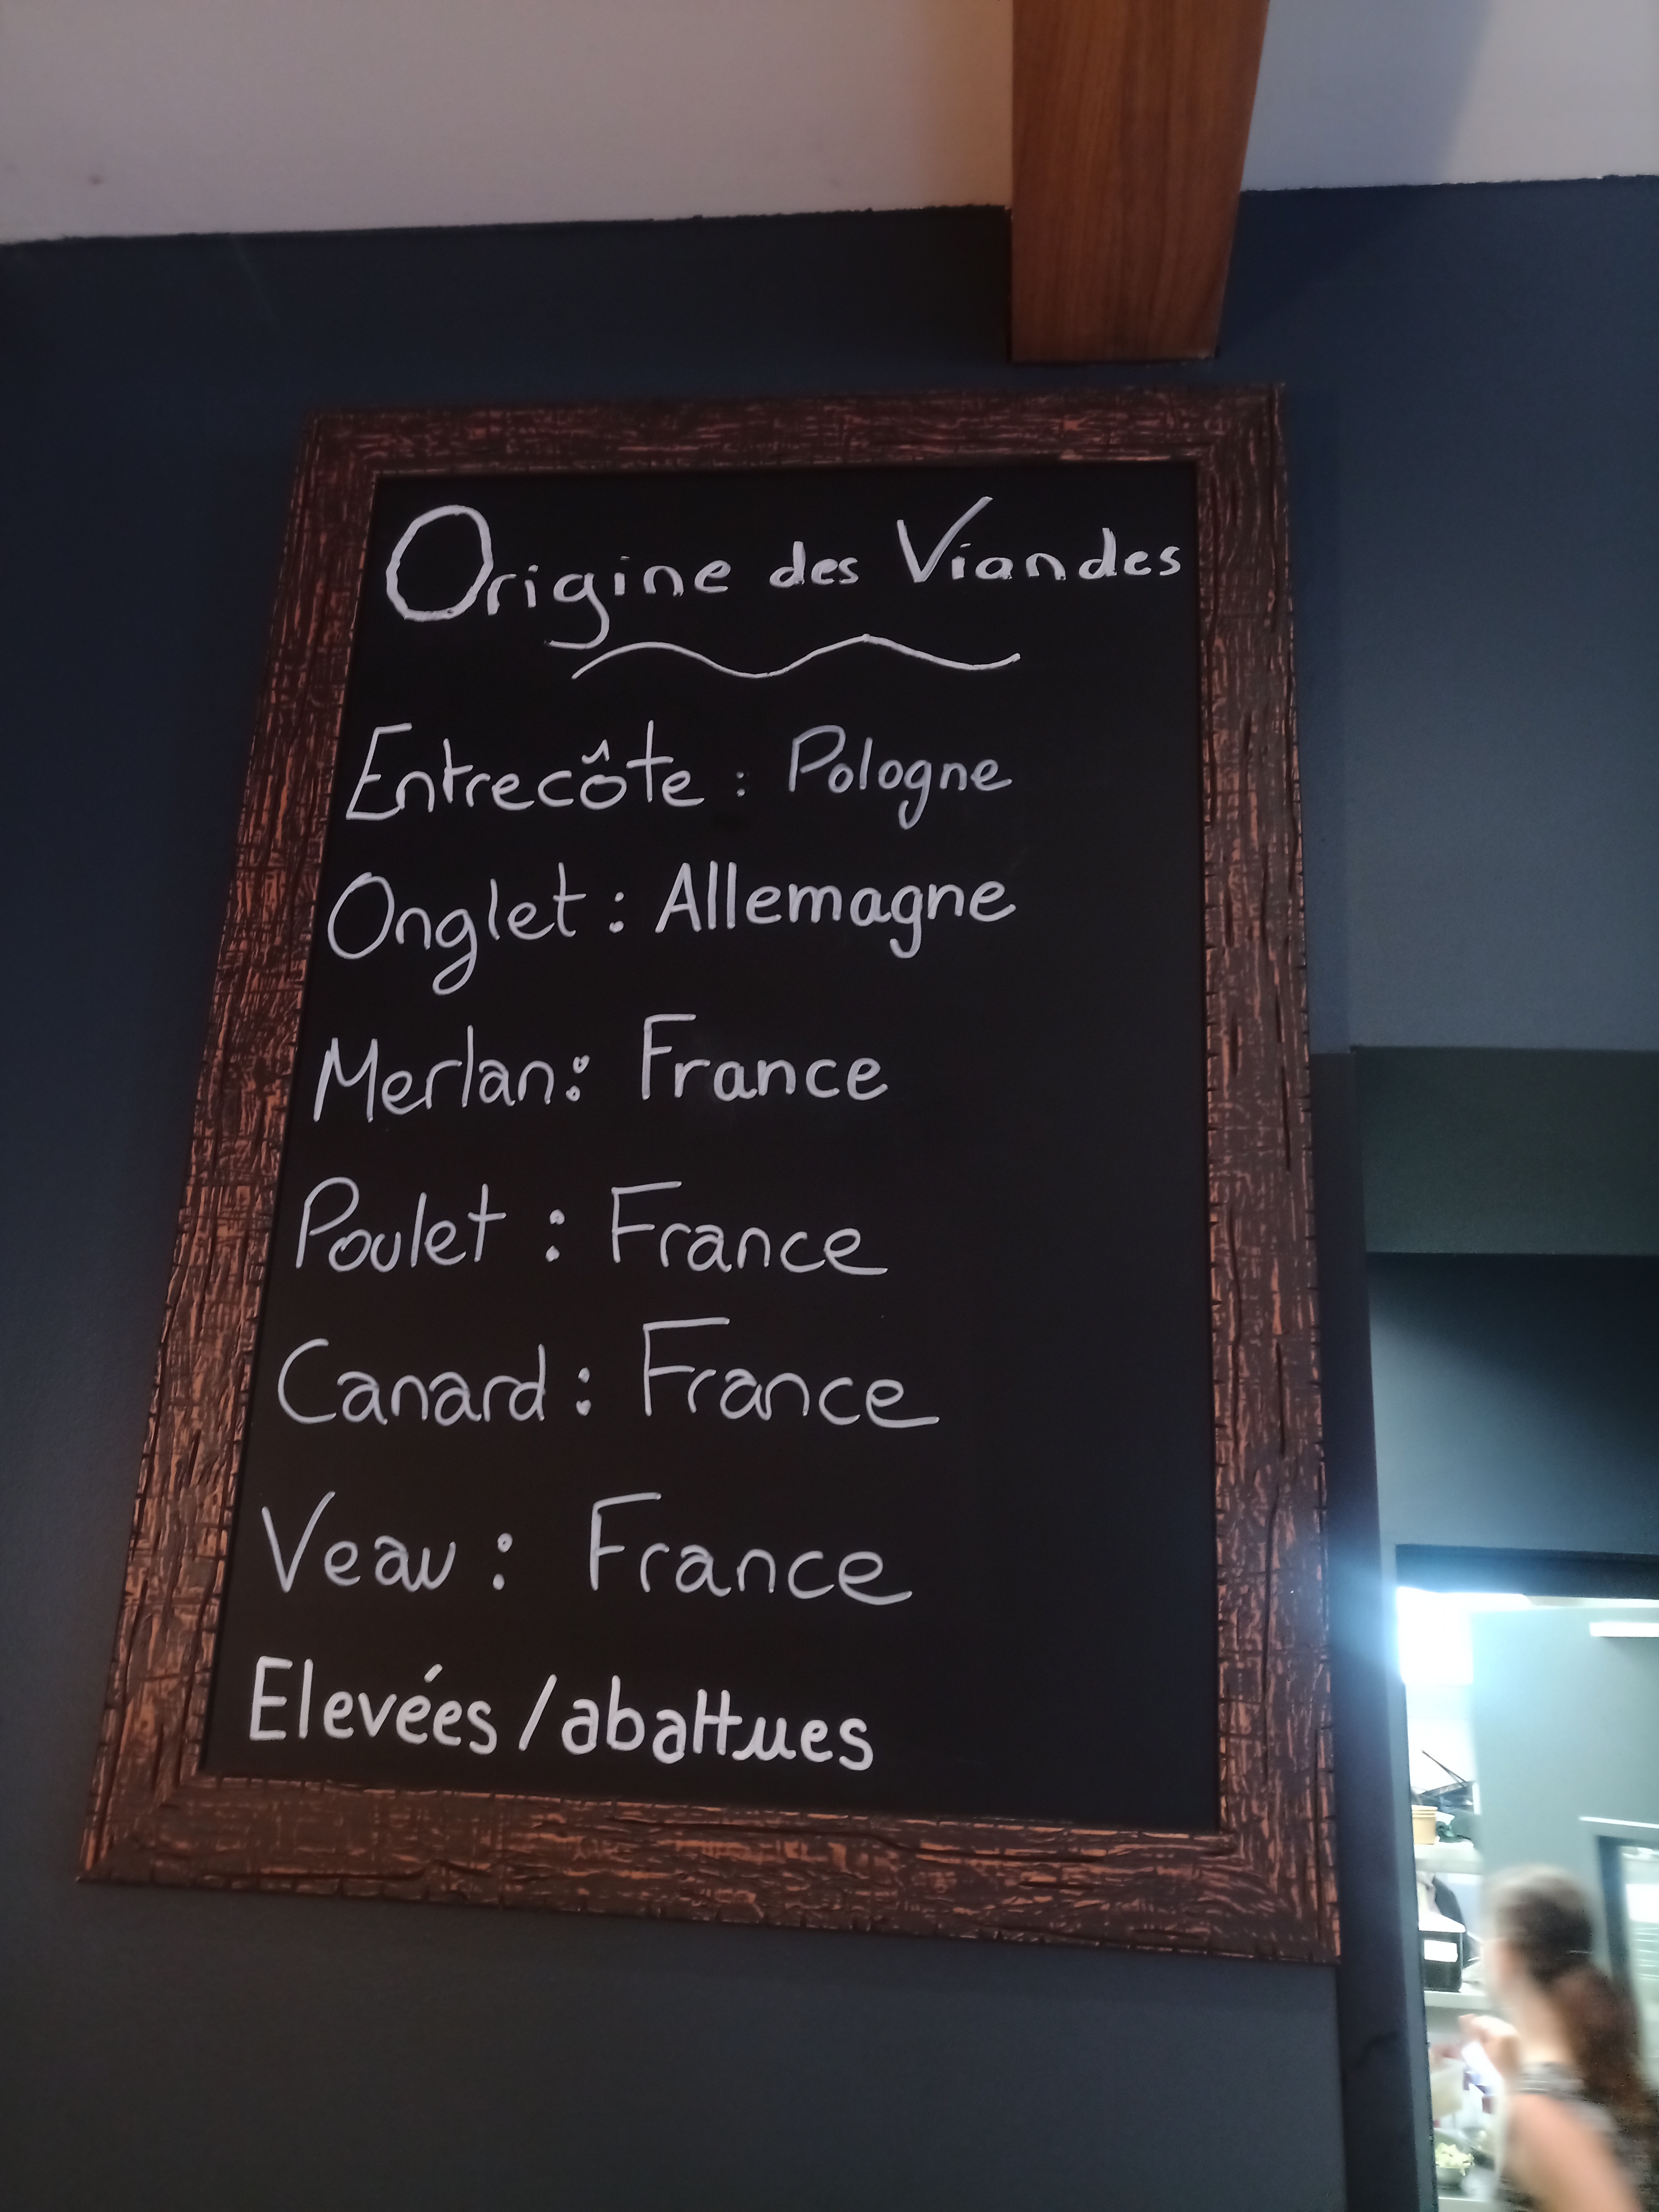 Origine des Viandes
Entrecôte : Pologne
Onglet : Allemagne
Merlan : France
Poulet : France
Canard : France
Veau : France
Elevées / abattues